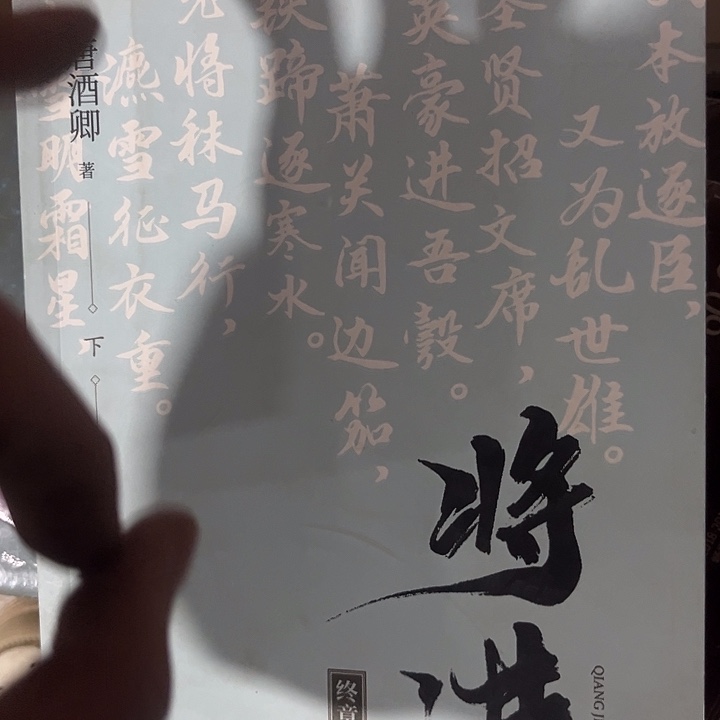 本放逐臣，
又为乱世雄。
圣贤招文席，
英豪进吾彀。
萧关闻边笳，
蹄逐寒水。
将秣马行，
瀌雪征衣重。
霜星，
唐酒卿 著
下
将进
QIANG J
终章